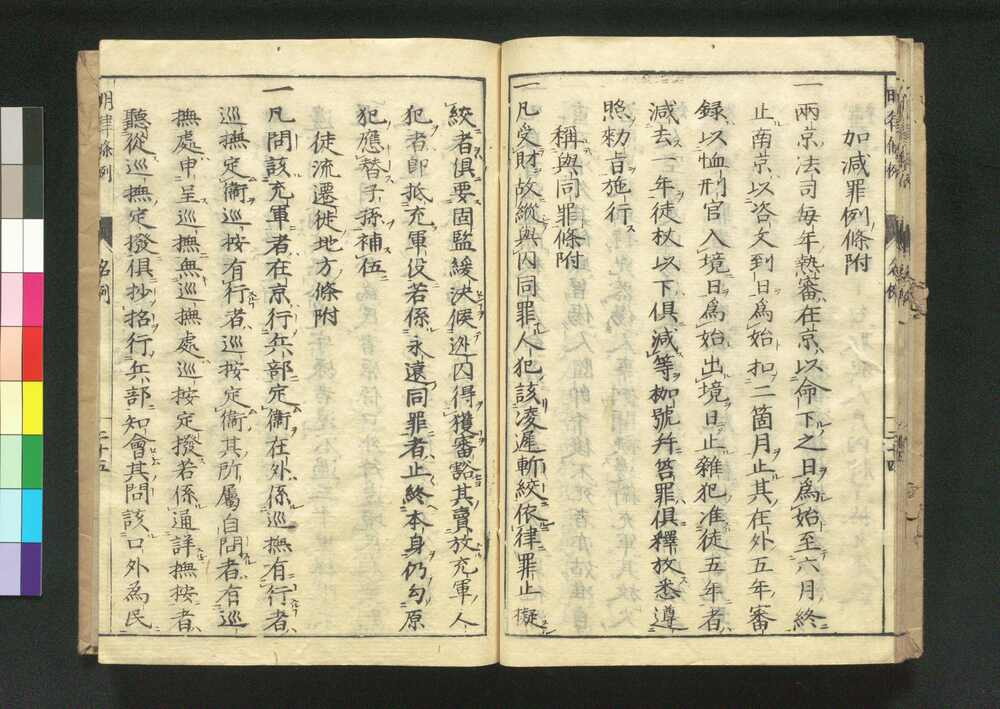 加減罪例條附
一兩京法司每年熱審在京以命下之日為始至六月終
止南京以咨文到日為始扣二箇月止其在外五年審
錄以恤刑官入境日為始出境日止雜犯准徒五年者
減去一年徒杖以下俱減等枷號幷笞罪俱釋放悉遵
照勑旨施行
稱與同罪條附
一凡受財故縱與囚同罪人犯該凌遲斬絞依律罪止擬
絞者俱要固監緩決候逃囚得獲審豁其賣放充軍人
犯者卽抵充軍役若係永遠同罪者止終本身仍勾原
犯應替子孫補伍
徒流遷徙地方條附
一凡問該充軍者在京行兵部定衞在外係巡撫有行者
巡撫定衞巡按有行者巡按定衞其所屬自問者有巡
撫處申呈巡撫無巡撫處巡按定撥若係通詳撫按者
聽從巡撫定撥俱抄招行兵部知會其問該口外為民
明律條例
名例
二十五